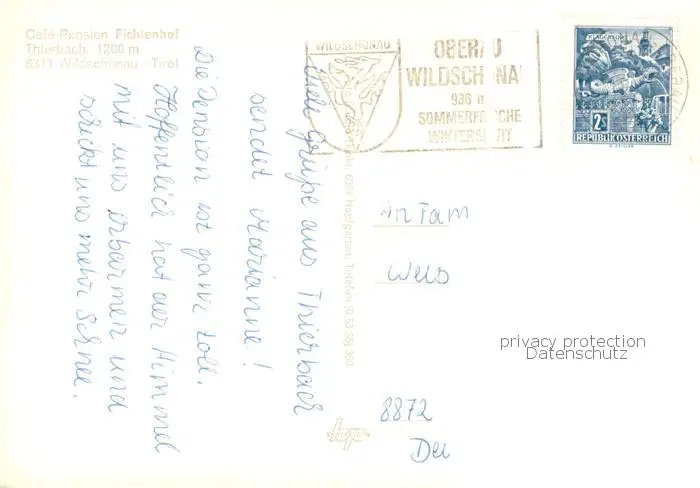 Café-Pension Fichtenhof
Thierbach, 1200 m
6311 Wildschönau - Tirol
WILDSCHÖNAU
OBERAU
WILDSCHÖNAU
936 m
SOMMERFRISCHE
WINTERSPORT
2 S
REPUBLIK ÖSTERREICH
Viele Grüße aus Thierbach
sendet Marianne!
Die Pension ist ganz toll.
Hoffentlich hat der Himmel
mit uns erbarmen und
schickt uns mehr Schnee.
Hopfgarten, Tirol
An Fam
Weis
8872
privacy protection
Datenschutz